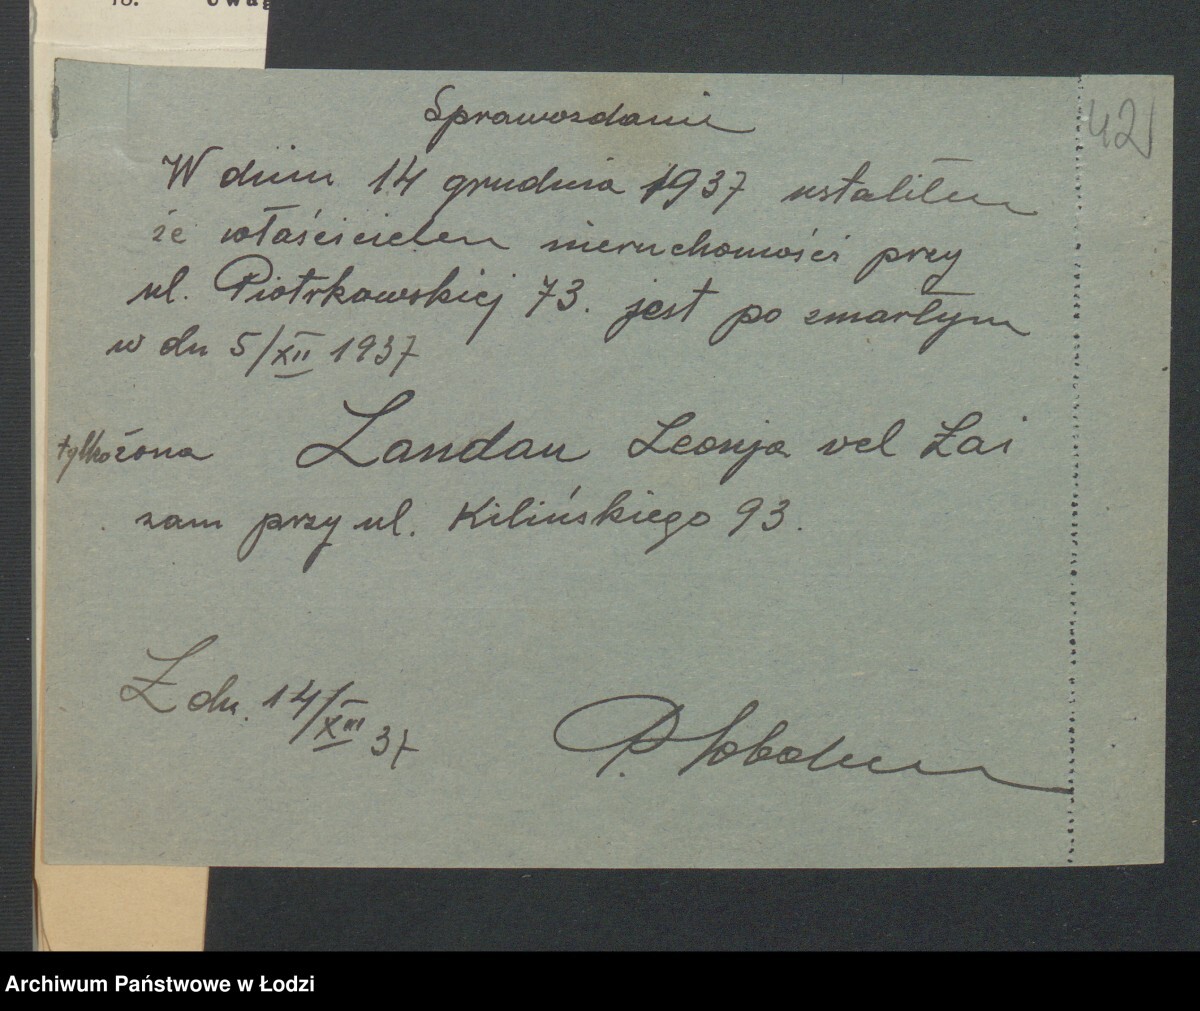 18. Uwag
42
Sprawozdanie
W dniu 14 grudnia 1937 ustaliłem
że właścicielem nieruchomości przy
ul. Piotrkowskiej 73. jest po zmarłym
w dn 5/XII 1937
tylko żona Landau Leonja vel Łai
zam przy ul. Kilińskiego 93.
Ł dn. 14/XII 37
Archiwum Państwowe w Łodzi